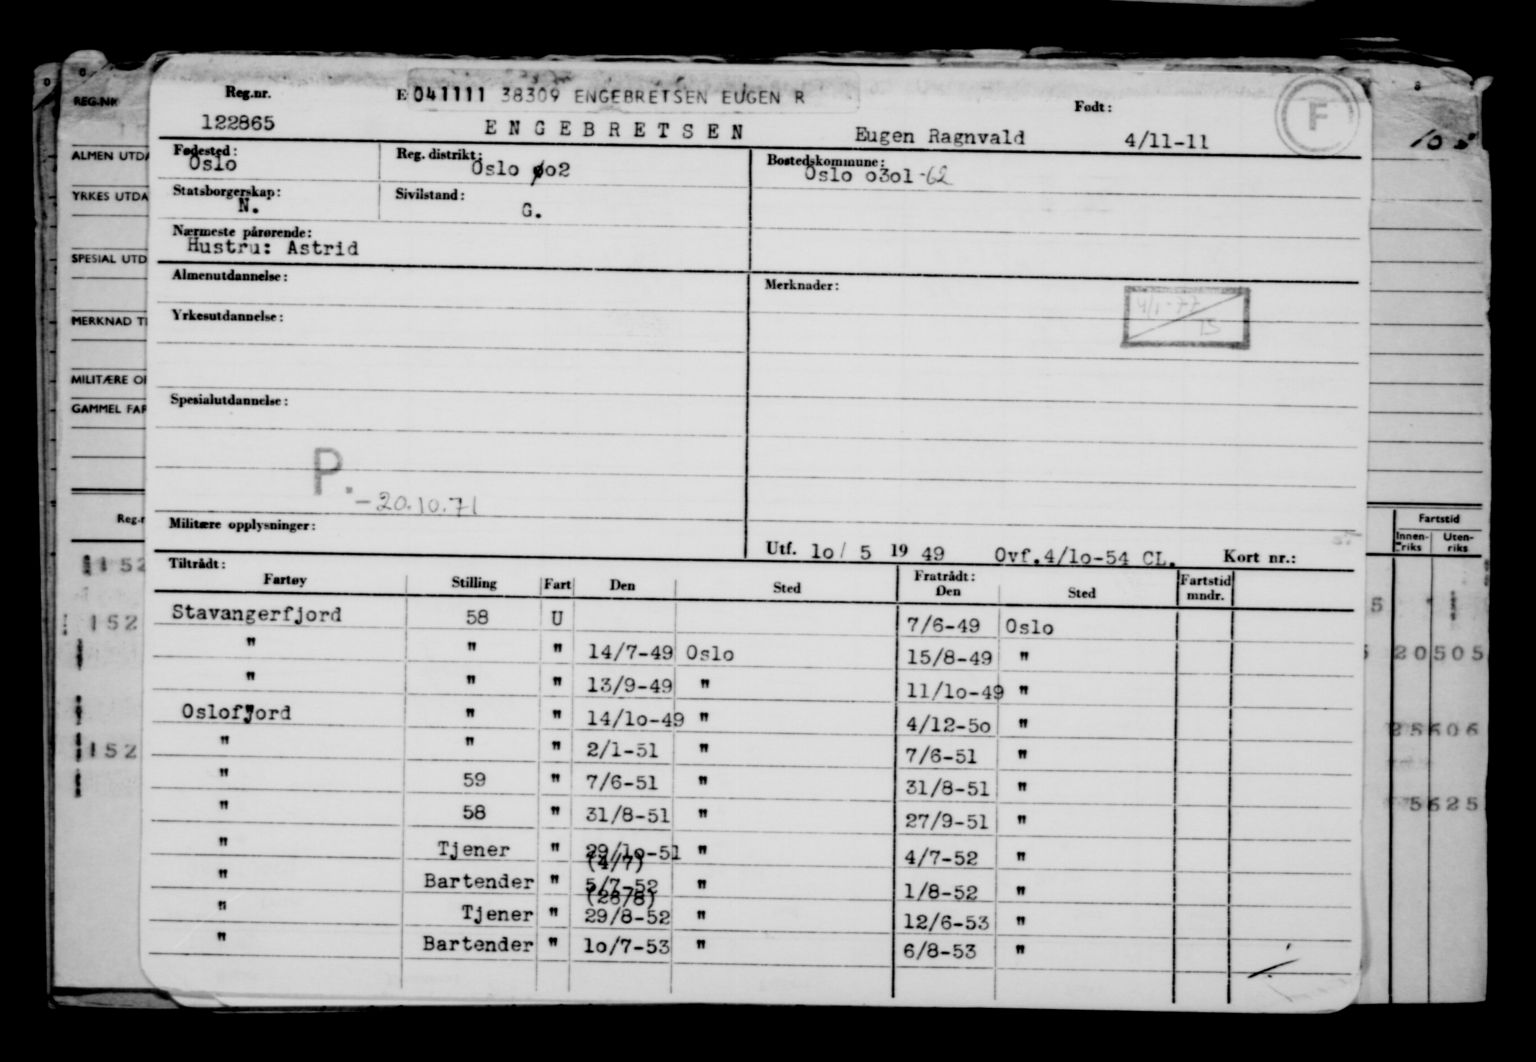 Reg.nr.
E 041111 38309 ENGEBRETSEN EUGEN R
Født:
F
122865
ENGEBRETSEN
Eugen Ragnvald
4/11-11
Fødested:
Oslo
Reg. distrikt:
Oslo øo2
Bostedskommune:
Oslo o3o1-62
Statsborgerskap:
N.
Sivilstand:
G.
Nærmeste pårørende:
Hustru: Astrid
Almenutdannelse:
Merknader:
4/1-77
15
Yrkesutdannelse:
Spesialutdannelse:
P.
-20.10.71
Militære opplysninger:
Utf. 1o/ 5 19 49 Ovf.4/1o-54 CL. Kort nr.:
Tiltrådt:
Fartøy Stilling Fart Den Sted Fratrådt: Den Sted Fartstid mndr.
Stavangerfjord 58 U 7/6-49 Oslo
" " " 14/7-49 Oslo 15/8-49 "
" " " 13/9-49 " 11/1o-49 "
Oslofjord " " 14/1o-49 " 4/12-5o "
" " " 2/1-51 " 7/6-51 "
" 59 " 7/6-51 " 31/8-51 "
" 58 " 31/8-51 " 27/9-51 "
" Tjener " 29/1o-51 " 4/7-52 "
(4/7)
" Bartender " 5/7-52 " 1/8-52 "
(28/8)
" Tjener " 29/8-52 " 12/6-53 "
" Bartender " 1o/7-53 " 6/8-53 "
REG.NR
ALMEN UTDA
YRKES UTDA
SPESIAL UTD
MERKNAD TI
MILITÆRE OP
GAMMEL FAR
Reg.r
152
152
152
Fartstid
Innen-riks
Uten-riks
20505
25606
5625